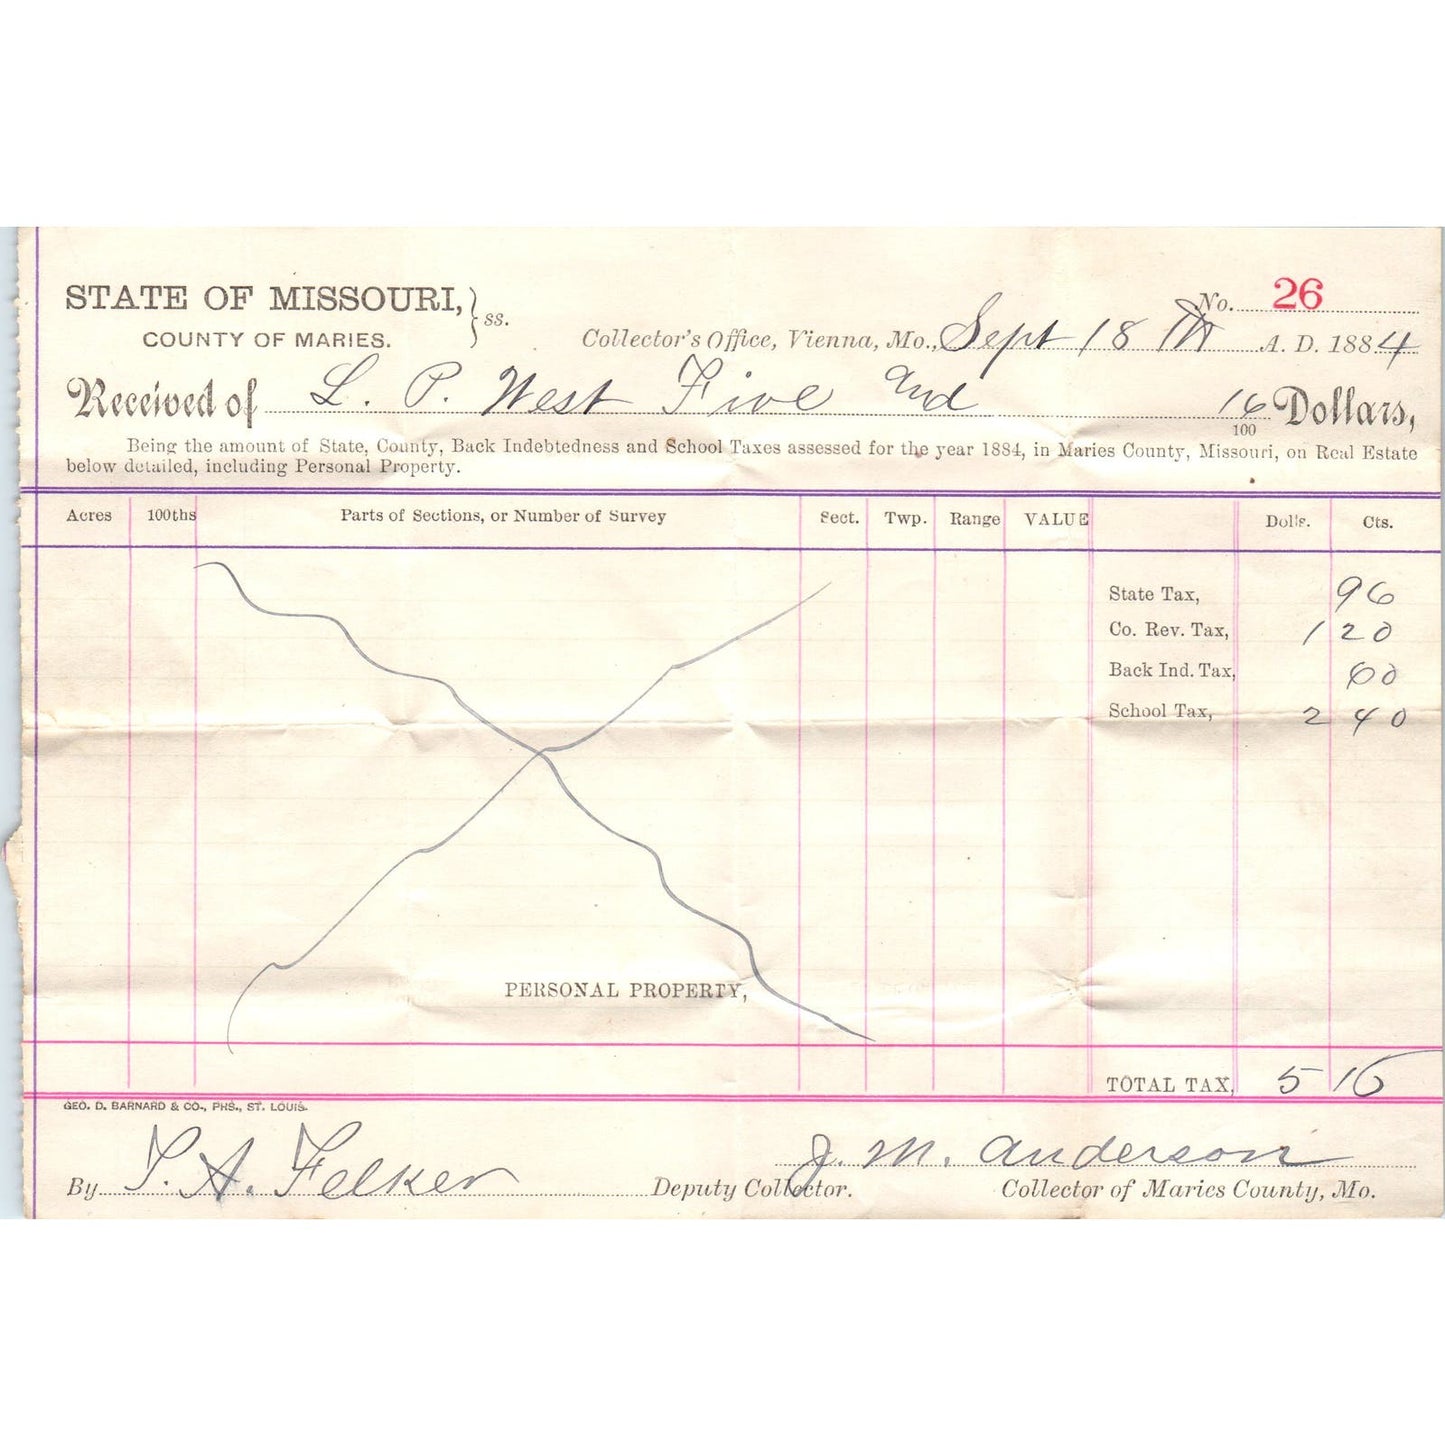 STATE OF MISSOURI, } ss.
COUNTY OF MARIES.
No. 26
Collector's Office, Vienna, Mo., Sept 18 th A. D. 1884
Received of L. P. West Five and 16/100 Dollars,
Being the amount of State, County, Back Indebtedness and School Taxes assessed for the year 1884, in Maries County, Missouri, on Real Estate
below detailed, including Personal Property.
Acres 100ths Parts of Sections, or Number of Survey Sect. Twp. Range VALUE Dolls. Cts.
State Tax, 96
Co. Rev. Tax, 1 20
Back Ind. Tax, 60
School Tax, 2 40
PERSONAL PROPERTY,
TOTAL TAX, 5 16
GEO. D. BARNARD & CO., PHS., ST. LOUIS.
J. M. Anderson
By T. A. Felker Deputy Collector. Collector of Maries County, Mo.